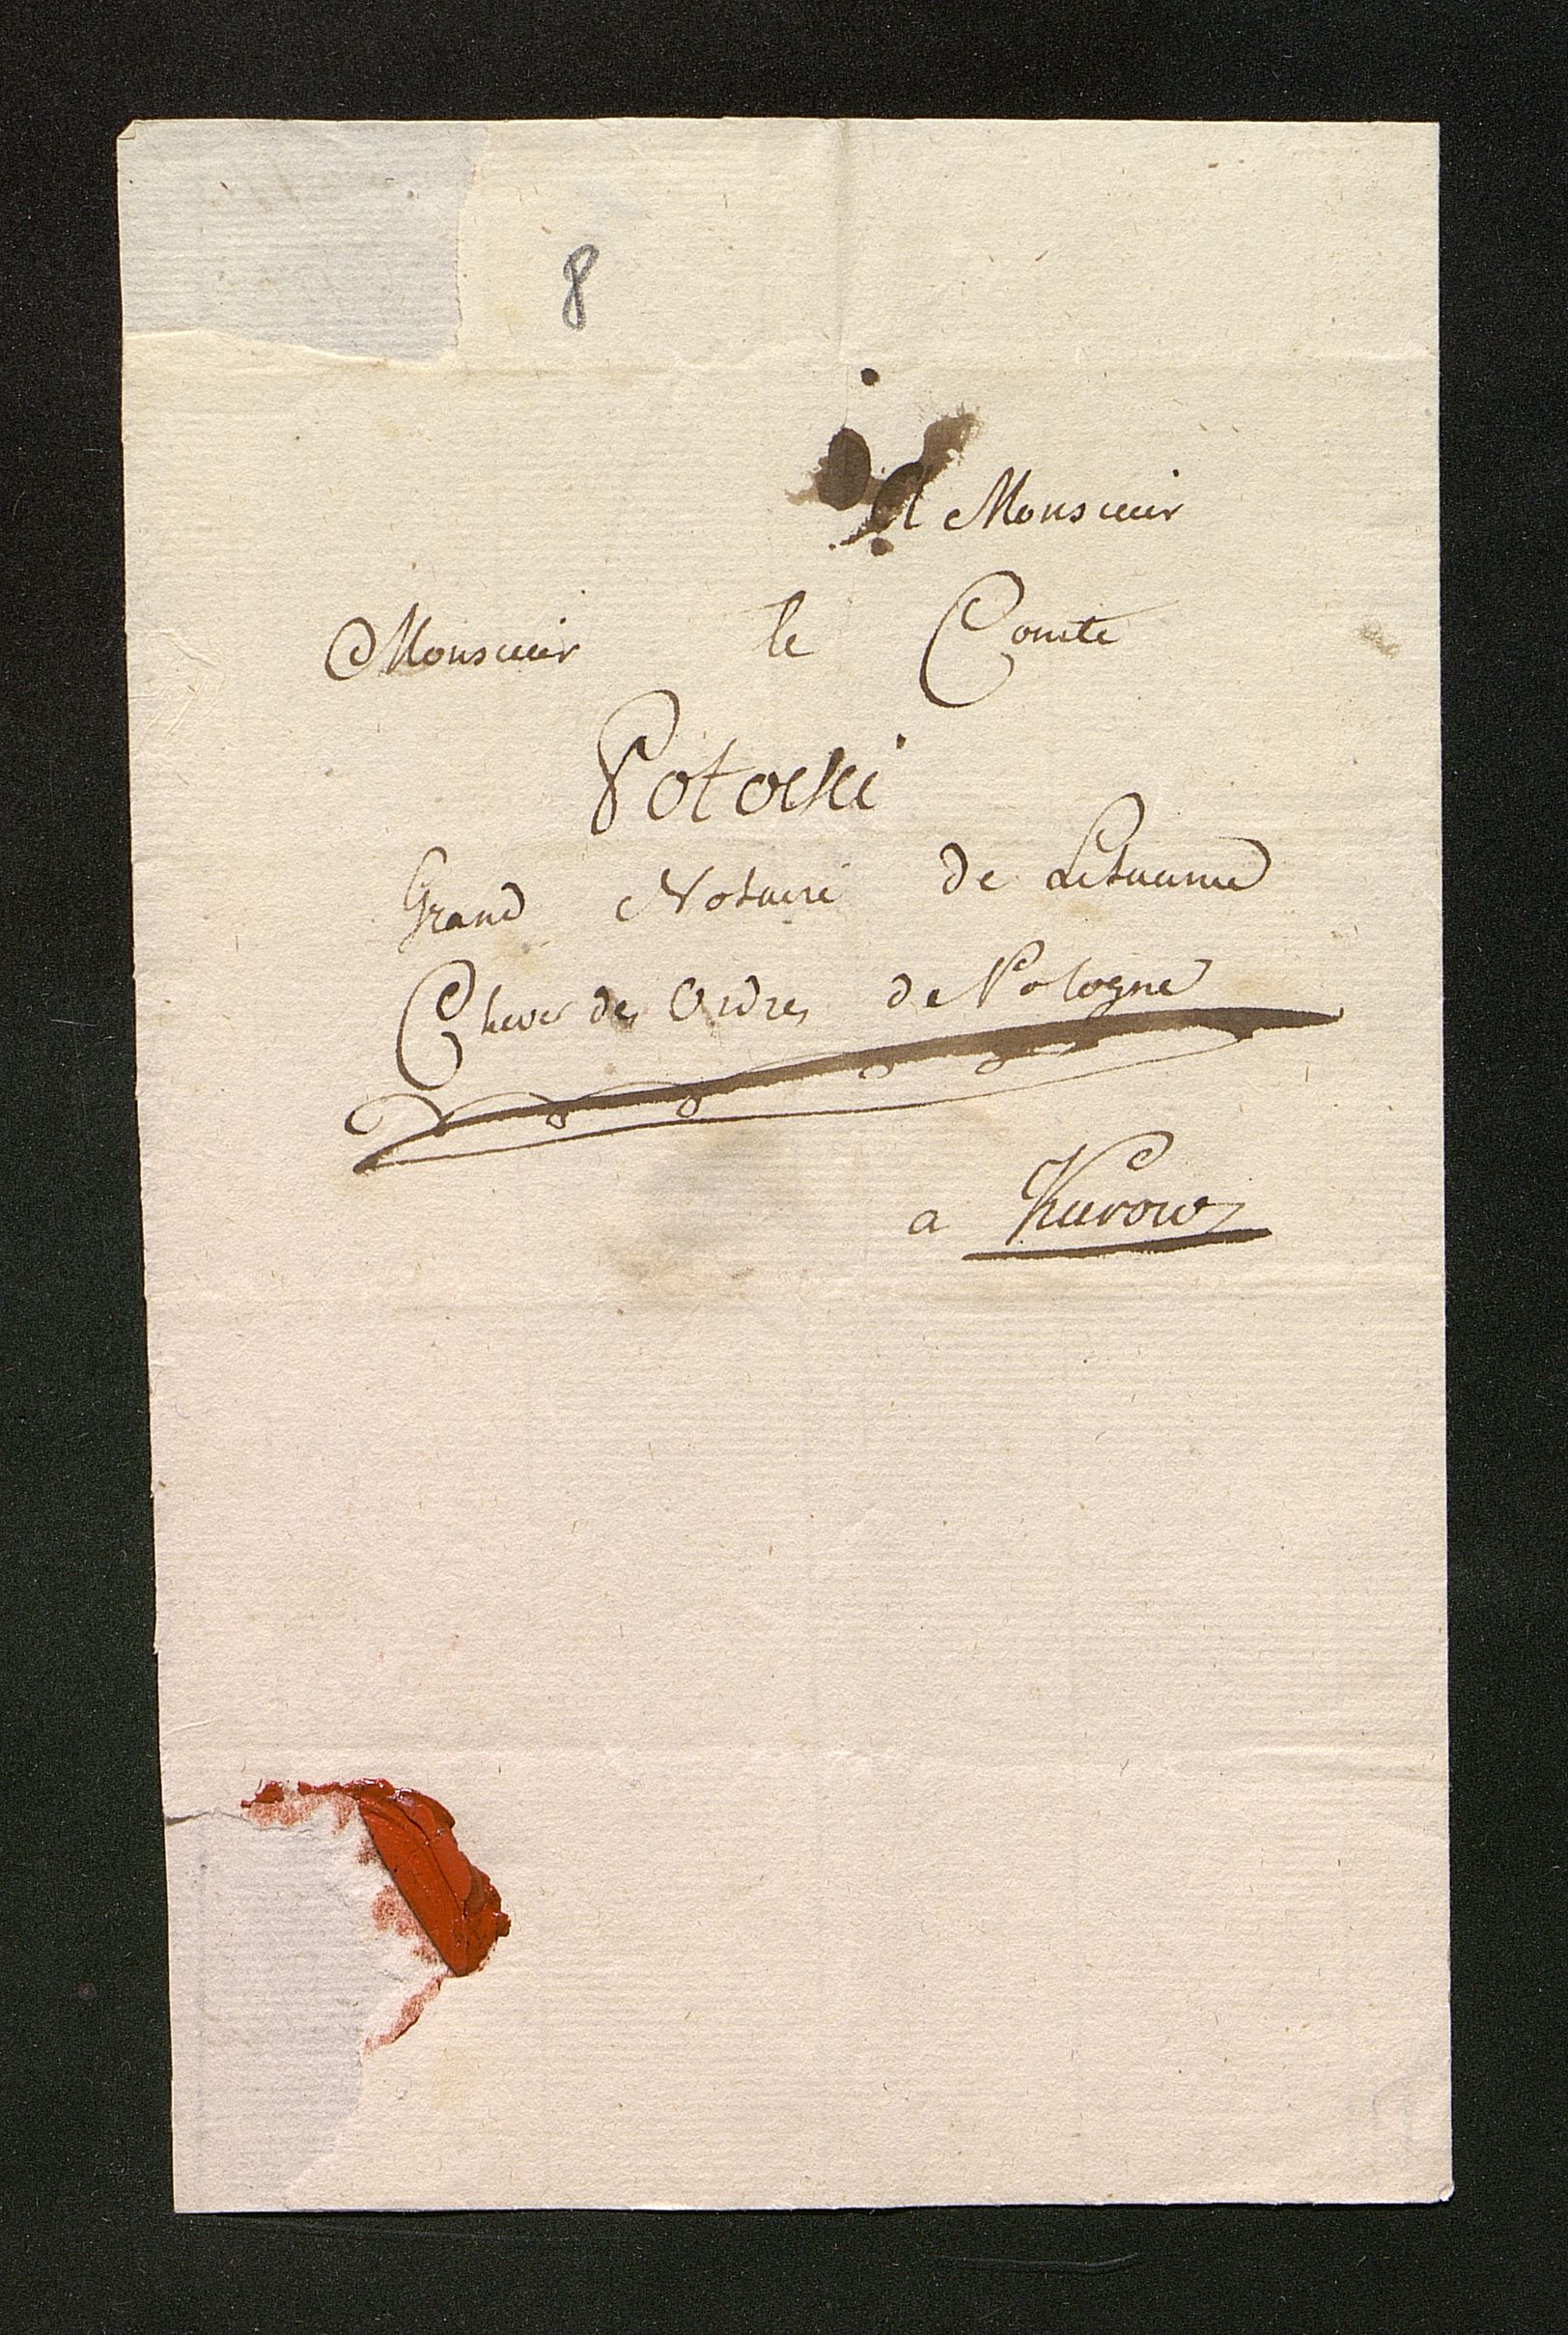 8
A Monsieur
Monsieur le Comte
Potocki
Grand Notaire de Lituanie
Chever des Ordres de Pologne
a Kurow